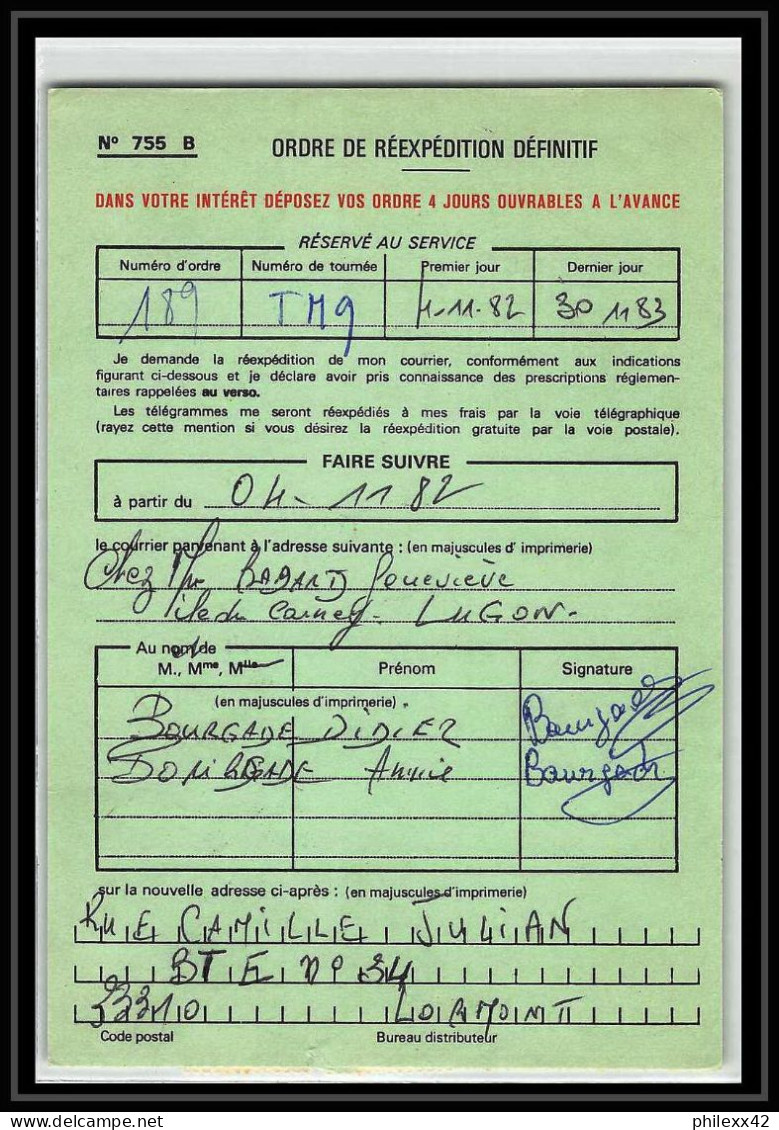 Nº 755 B ORDRE DE RÉEXPÉDITION DÉFINITIF
DANS VOTRE INTÉRÊT DÉPOSEZ VOS ORDRE 4 JOURS OUVRABLES A L'AVANCE
RÉSERVÉ AU SERVICE
Numéro d'ordre Numéro de tournée Premier jour Dernier jour
189 TM9 4-11-82 30 11 83
Je demande la réexpédition de mon courrier, conformément aux indications
figurant ci-dessous et je déclare avoir pris connaissance des prescriptions réglemen-
taires rappelées au verso.
Les télégrammes me seront réexpédiés à mes frais par la voie télégraphique
(rayez cette mention si vous désirez la réexpédition gratuite par la voie postale).
FAIRE SUIVRE
à partir du 04-11 82
le courrier parvenant à l'adresse suivante : (en majuscules d'imprimerie)
Chez Mme Geneviève
île du Carney - LUGON -
Au nom de
M., Mme, Mlle Prénom Signature
(en majuscules d'imprimerie)
BOURGADE DIDIER Bourgade
BOURGADE Annie Bourgade
sur la nouvelle adresse ci-après : (en majuscules d'imprimerie)
RUE CAMILLE JULIAN
BTE Nº 34
33310 LORMONT
Code postal Bureau distributeur
philexx42